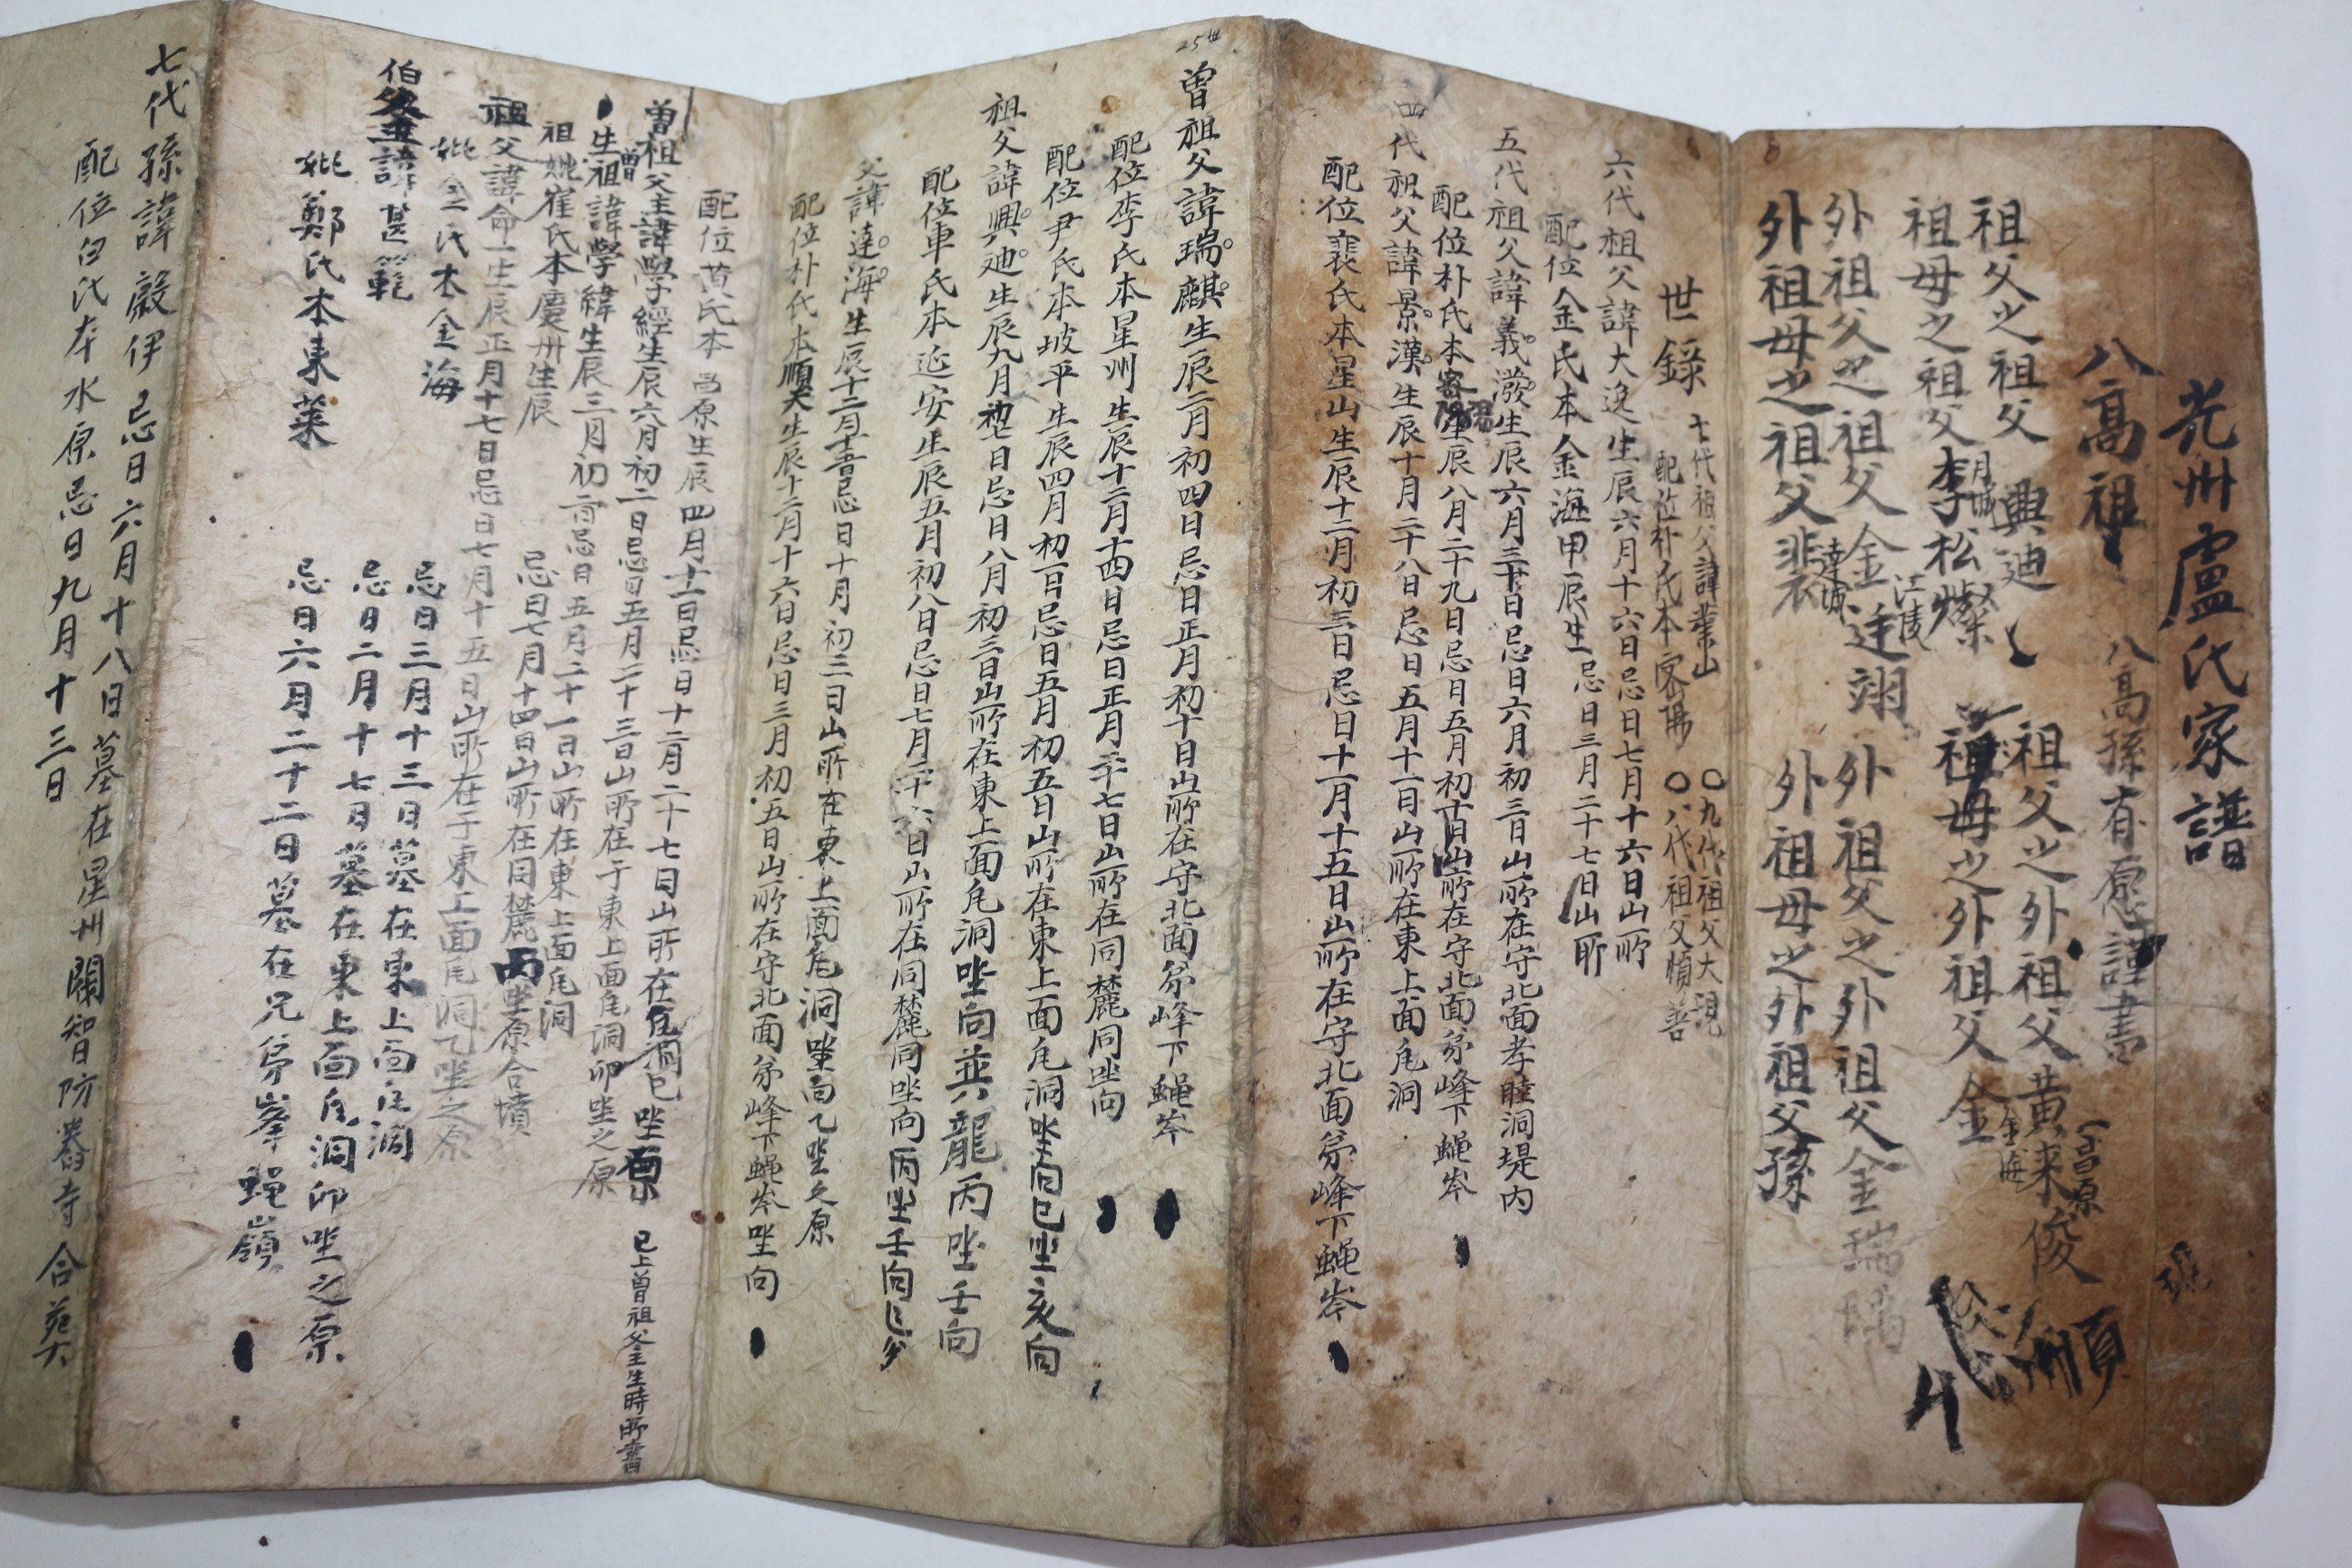 光州盧氏家譜
八高祖 八高孫有愿謹書
祖父之祖父 興廸 祖父之外祖父黃來俊 昌原
祖母之祖父 月城 李松燦 祖母之外祖父金 金海
外祖父之祖父金 江陵 達翊 外祖父之外祖父金瑞
外祖母之祖父裵 達城 外祖母之外祖父孫
順
世錄 七代祖父諱 山 〇九代祖父大現
配位朴氏本密陽 〇八代祖父慎善
六代祖父諱大逸生辰六月十六日忌日七月十六日山所
配位金氏本金海甲辰生忌日三月二十七日山所
五代祖父諱義潑生辰六月三十日忌日六月初三日山所在守北面孝睦洞堤内
配位朴氏本密陽生辰八月二十九日忌日五月初十日山所在守北面弟峰下蠅岑
四代祖父諱景漢生辰十月二十八日忌日五月十一日山所在東上面凥洞
配位裵氏本星山生辰十二月初三日忌日十一月十五日山所在守北面弟峰下蠅岑
25世
曾祖父諱瑞麒生辰二月初四日忌日正月初十日山所在守北面弟峰下蠅岑
配位李氏本星州生辰十二月十四日忌日正月二十七日山所在同麓同坐向
配位尹氏本坡平生辰四月初一日忌日五月初五日山所在東上面凥洞坐向巳坐亥向
祖父諱興廸生辰九月初七日忌日八月初三日山所在東上面凥洞坐向並六龍丙坐壬向
配位車氏本延安生辰五月初八日忌日七月二十六日山所在同麓同坐向丙坐壬向
父諱達海生辰十二月 忌日十月初三日山所在東上面凥洞坐向乙坐之原
配位朴氏本順天生辰十二月十六日忌日三月初五日山所在守北面弟峰下蠅岑坐向
配位黃氏本昌原生辰四月十一日忌日十二月二十七日山所在凥洞巳坐原
曾祖父主諱學經生辰六月初二日忌日五月二十三日山所在于東上面凥洞卯坐之原 已上曾祖父主生時所書
生曾祖諱學緯生辰三月初二日忌日五月二十一日山所在東上面凥洞
祖妣崔氏本慶州生辰 忌日七月十四日山所在同麓丙坐原合墳
祖父諱命一生辰正月十七日忌日七月十五日山所在于東上面凥洞乙坐之原
妣金氏本金海 忌日三月十三日墓在東上面凥洞
伯父主諱甚範 忌日二月十七日墓在東上面凥洞卯坐之原
妣鄭氏本東萊 忌日六月二十二日墓在兄弟峯蠅嶺
七代孫諱 伊 忌日六月十八日墓在星州闌智防 寺合葬
配位白氏本水原忌日九月十三日